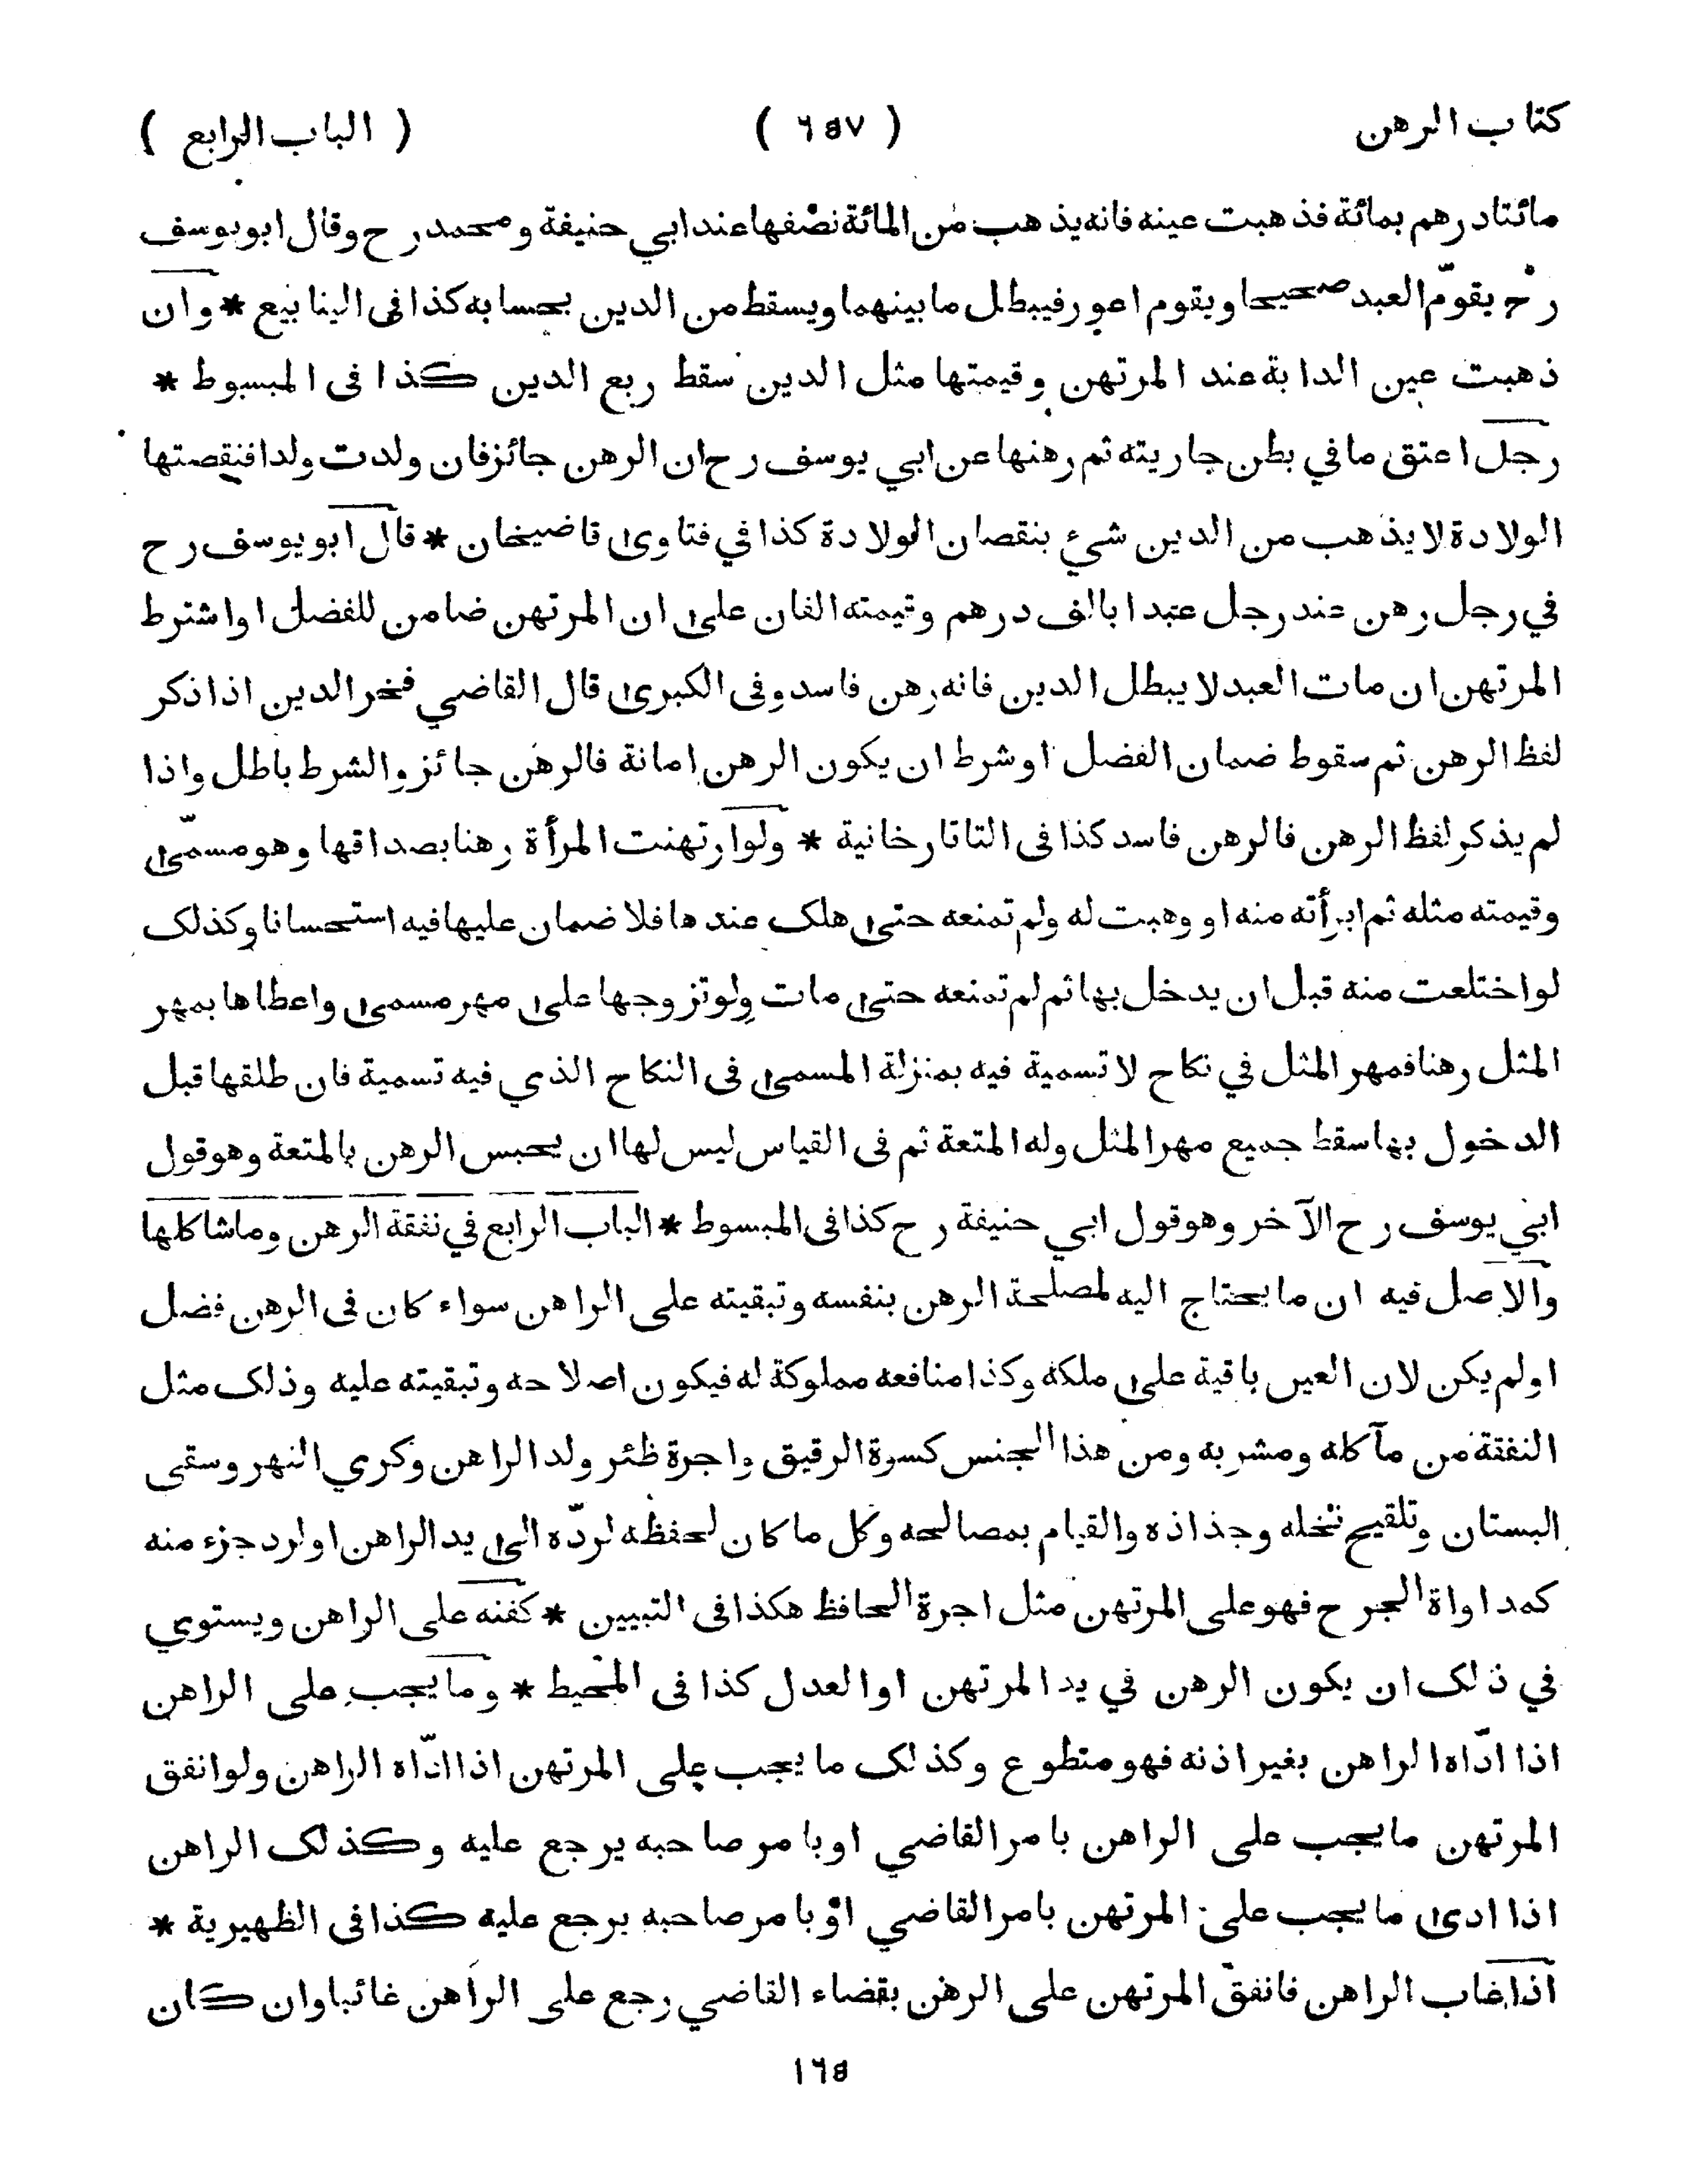 كتاب الرهن ( ٦٥٧ ) ( الباب الرابع )
مائتا درهم بمائة فذهبت عينه فانه يذهب من المائة نصفها عند ابي حنيفة و محمد رح وقال ابو يوسف
رح يقوّم العبد صحيحا ويقوم اعور فيبطل ما بينهما ويسقط من الدين بحسابه كذا فى الينابيع * وان
ذهبت عين الدابة عند المرتهن وقيمتها مثل الدين سقط ربع الدين كذا فى المبسوط *
رجل اعتق ما في بطن جاريته ثم رهنها عن ابي يوسف رح ان الرهن جائز فان ولدت ولدا فنقصتها
الولادة لا يذهب من الدين شيء بنقصان الولادة كذا في فتاوى قاضيخان * قال ابو يوسف رح
في رجل رهن عند رجل عبدا بالف درهم وقيمته الفان على ان المرتهن ضامن للفضل او اشترط
المرتهن ان مات العبد لا يبطل الدين فانه رهن فاسد وفى الكبرى قال القاضي فخر الدين اذا ذكر
لفظ الرهن ثم سقوط ضمان الفضل او شرط ان يكون الرهن امانة فالرهن جائز والشرط باطل واذا
لم يذكر لفظ الرهن فالرهن فاسد كذا فى التاتارخانية * ولو ارتهنت المرأة رهنا بصداقها وهو مسمّى
وقيمته مثله ثم ابرأته منه او وهبت له ولم تمنعه حتى هلك عندها فلا ضمان عليها فيه استحسانا وكذلك
لو اختلعت منه قبل ان يدخل بها ثم لم تمنعه حتى مات ولو تزوجها على مهر مسمى واعطاها بمهر
المثل رهنا فمهر المثل في نكاح لا تسمية فيه بمنزلة المسمى فى النكاح الذي فيه تسمية فان طلقها قبل
الدخول بها سقط جميع مهر المثل وله المتعة ثم فى القياس ليس لها ان يحبس الرهن بالمتعة وهو قول
ابي يوسف رح الآخر وهو قول ابي حنيفة رح كذا فى المبسوط * الباب الرابع في نفقة الرهن وما شاكلها
والاصل فيه ان ما يحتاج اليه لمصلحة الرهن بنفسه وتبقيته على الراهن سواء كان فى الرهن فضل
او لم يكن لان العين باقية على ملكه وكذا منافعه مملوكة له فيكون اصلاحه وتبقيته عليه وذلك مثل
النفقة من مآكله ومشربه ومن هذا الجنس كسوة الرقيق واجرة ظئر ولد الراهن وكري النهر وسقى
البستان وتلقيح نخله وجذاذه والقيام بمصالحه وكل ما كان لحفظه لردّه الى يد الراهن او لرد جزء منه
كمداواة الجرح فهو على المرتهن مثل اجرة الحافظ هكذا فى التبيين * كفنه على الراهن ويستوي
في ذلك ان يكون الرهن في يد المرتهن او العدل كذا فى المحيط * وما يجب على الراهن
اذا ادّاه الراهن بغير اذنه فهو متطوع وكذلك ما يجب على المرتهن اذا ادّاه الراهن ولو انفق
المرتهن ما يجب على الراهن بامر القاضي او بامر صاحبه يرجع عليه وكذلك الراهن
اذا ادى ما يجب على المرتهن بامر القاضي او بامر صاحبه يرجع عليه كذا فى الظهيرية *
اذا غاب الراهن فانفق المرتهن على الرهن بقضاء القاضي رجع على الراهن غائبا وان كان
١٦٥